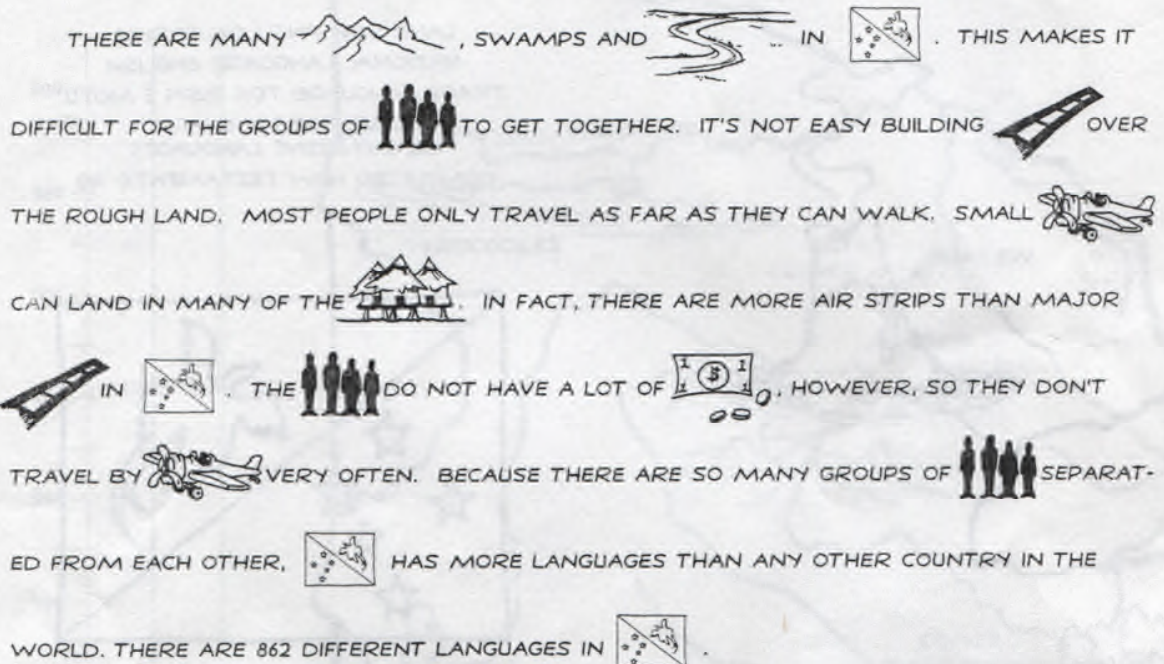 THERE ARE MANY , SWAMPS AND IN . THIS MAKES IT
DIFFICULT FOR THE GROUPS OF TO GET TOGETHER. IT'S NOT EASY BUILDING OVER
THE ROUGH LAND. MOST PEOPLE ONLY TRAVEL AS FAR AS THEY CAN WALK. SMALL
CAN LAND IN MANY OF THE . IN FACT, THERE ARE MORE AIR STRIPS THAN MAJOR
IN . THE DO NOT HAVE A LOT OF 1 $ 1 1 1 , HOWEVER, SO THEY DON'T
TRAVEL BY VERY OFTEN. BECAUSE THERE ARE SO MANY GROUPS OF SEPARAT-
ED FROM EACH OTHER, HAS MORE LANGUAGES THAN ANY OTHER COUNTRY IN THE
WORLD. THERE ARE 862 DIFFERENT LANGUAGES IN .